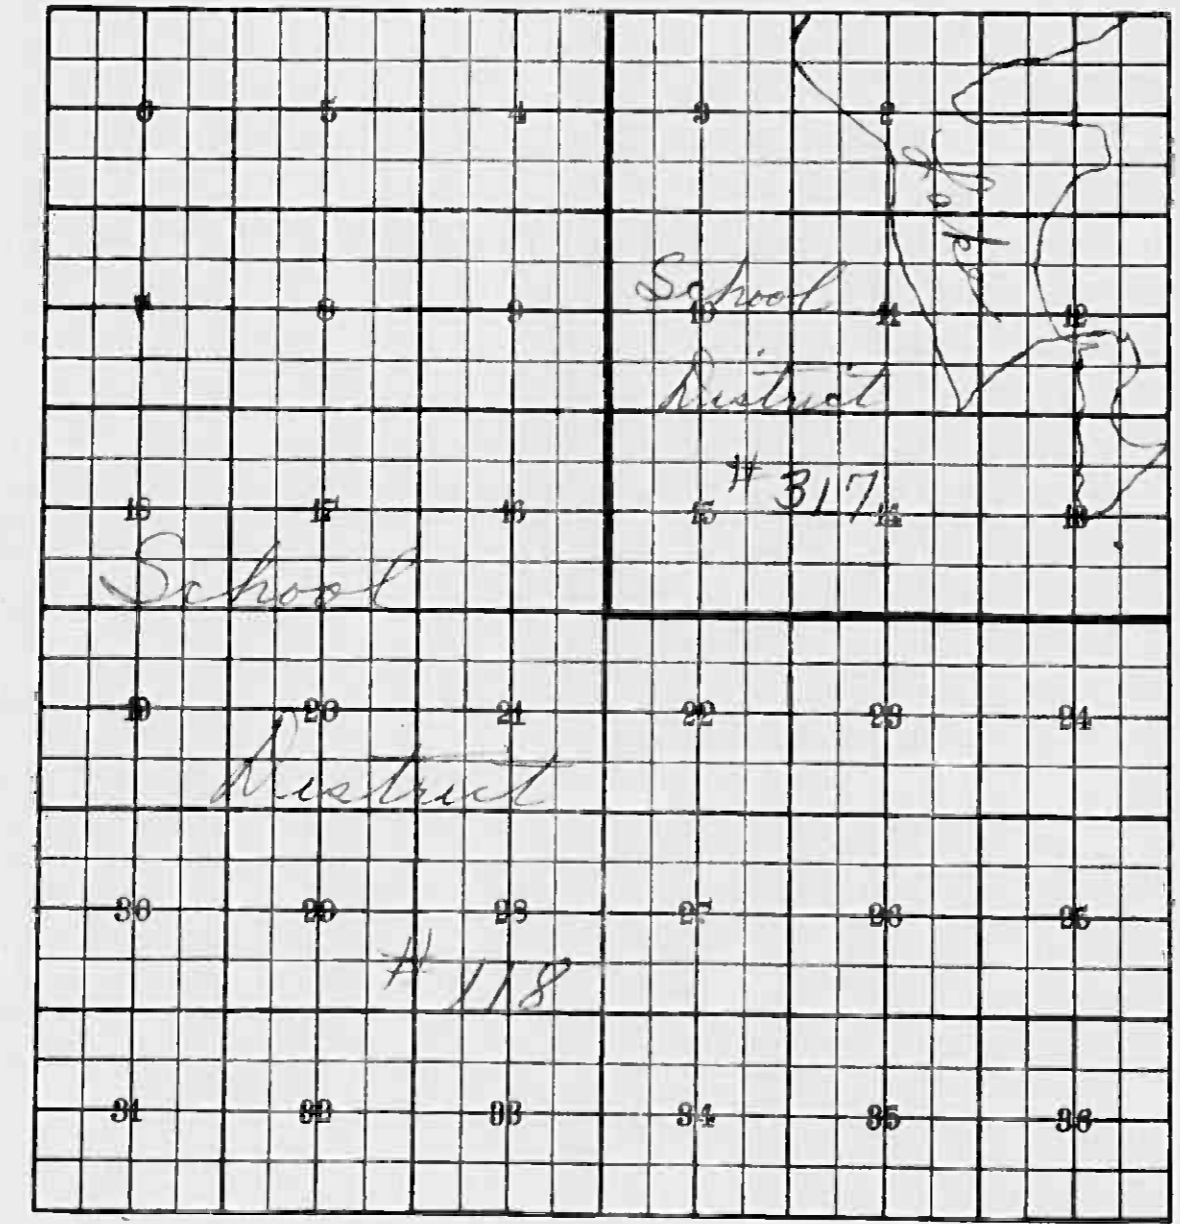 6 5 4 3 2 1
School
7 8 9 10 11 12
District
# 317
18 17 16 15 14 13
School
19 20 21 22 23 24
District
30 29 28 27 26 25
# 118
31 32 33 34 35 36